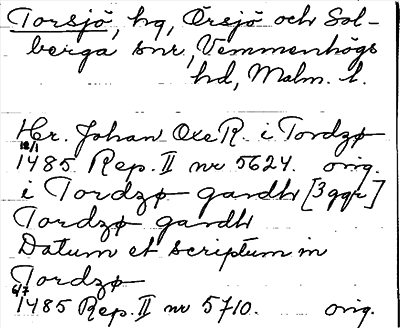 Torsjö, hg, Örsjö och Sol-
berga snr, Vemmenhögs
hd, Malm. l.
Hr. Johan Oxe R. i Tordzø
18/1
1485 Rep. II nr 5624. orig.
i Tordzø gardh [3 ggr]
Tordzø gardh
Datum et scriptum in
Tordzø
6/7
1485 Rep. II nr 5710. orig.